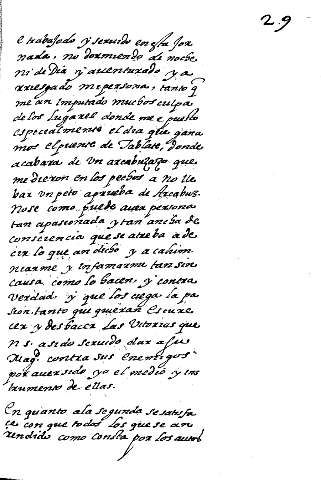 29
e trabajado y seruido en esta Jor
nada, no dormiendo de noche
ni de Dia y auenturado y a
rriesgado mi persona, tanto q̃
me an imputado muchos culpa
de los lugares donde me e puesto
especialmente el dia que gana
mos el puente de Tablate, donde
acabara de Vn arcabuzazo que
me dieron en los pechos a no lle
bar Vn peto aprueba de Arcabuz.
No se como puede auer persona
tan apasionada y tan ancha de
consciencia que se atreba a de
cir lo que an dicho y a calum
niarme y infamarme tan sin
causa como lo hacen, y contra
Verdad, y que los ciega la pa
sion, tanto que quieran escure
cer y deshacer las Vitorias que
N s. a sido seruido dar a su
Magd. contra sus enemigos
por auer sido yo el medio y ins
trumento de ellas.
En quanto ala segunda se satisfa
ce con que todos los que se an
rendido como consta por los autos